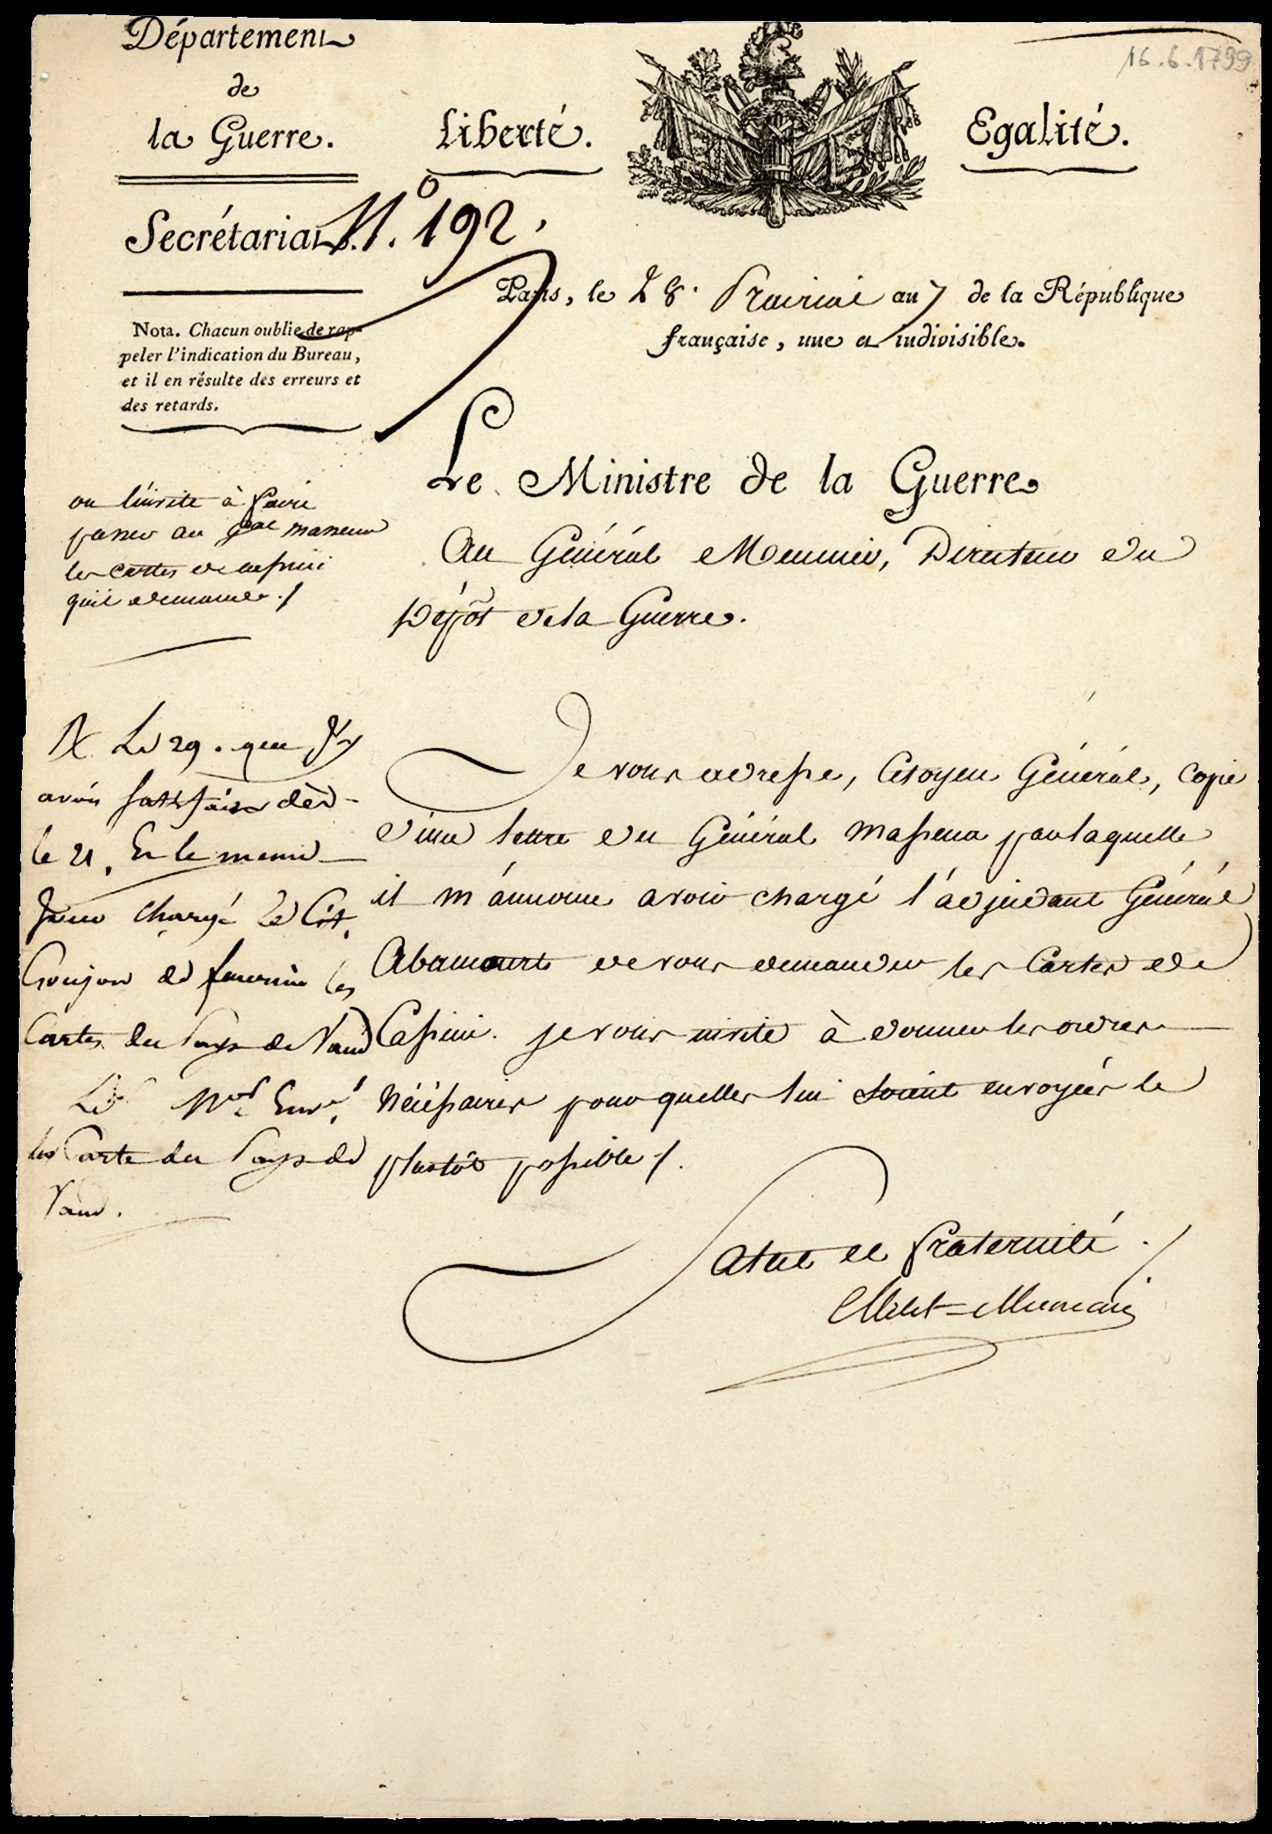 Département
de
la Guerre.
Liberté.
Egalité.
16.6.1799
Secrétariat.
N.° 192.
Paris, le 28. Prairial an 7 de la République
française, une et indivisible.
Nota. Chacun oublie de rap-
peler l'indication du Bureau,
et il en résulte des erreurs et
des retards.
Le Ministre de la Guerre
Au Général Meunier, Directeur du
Dépôt de la Guerre.
on l'invite à faire
passer au gal massena
les cartes de cassini
qu'il demande ./
Je vous adresse, Citoyen Général, Copie
d'une lettre du Général Massena par laquelle
il m'annonce avoir chargé l'adjudant Général
Abancourt de vous demander les Cartes de
Cassini. je vous invite à donner les ordres
Nécéssaires pour quelles lui soient envoyées le
plustôt possible ./.
Salut et fraternité ./
Milet=Mureau
Le 29. que
avoir satisfait dès
le 21. Et le même
Jour chargé le Cit.
Goujon de fournir les
Cartes du Pays de Vaud
les Carte du Pays de
Vaud.